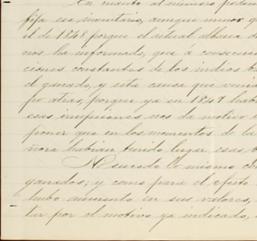 En cuanto al número podemos
fija ese inventario, aunque menor q
el de 1848 porque el actual albacea de
nos ha informado, que á consecuen
ciones constantes de los indios bár
el ganado, y esta causa que venia
por otras, porque ya en 1849 habi
esas irrupciones nos da motivo
poner que en los momentos de la
ñora habian tenido lugar esas
No sucede lo mismo con
ganados, y como para el efecto
hubo aumento en sus valores,
tar por el motivo ya indicado,